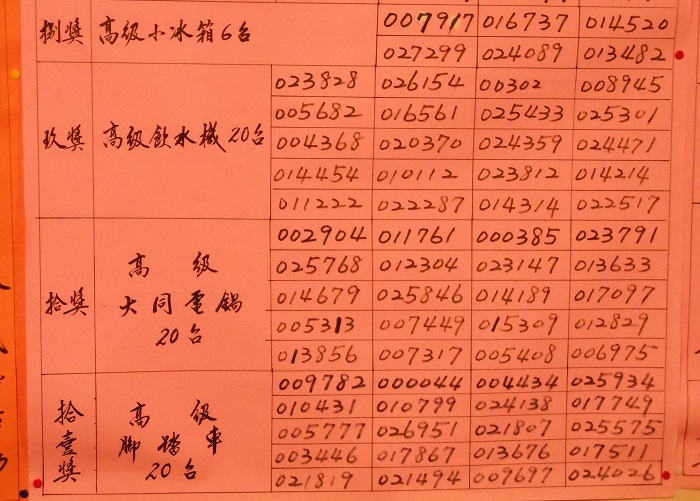 捌獎 高級小冰箱6台 007917 016737 014520
027299 024089 013482
023828 026154 00302 008945
005682 016561 025433 025301
玖獎 高級飲水機20台 004368 020370 024359 024471
014454 010112 023812 014214
011222 022287 014314 022517
002904 011761 000385 023791
高級 025768 012304 023147 013633
拾獎 大同電鍋 014679 025846 014189 017097
20台 005313 007449 015309 012829
013856 007317 005408 006975
009782 000044 004434 025934
拾壹獎 高級 010431 010799 024138 017749
腳踏車 005777 026951 021807 025575
20台 003446 017867 013676 017511
021819 021494 009697 024026